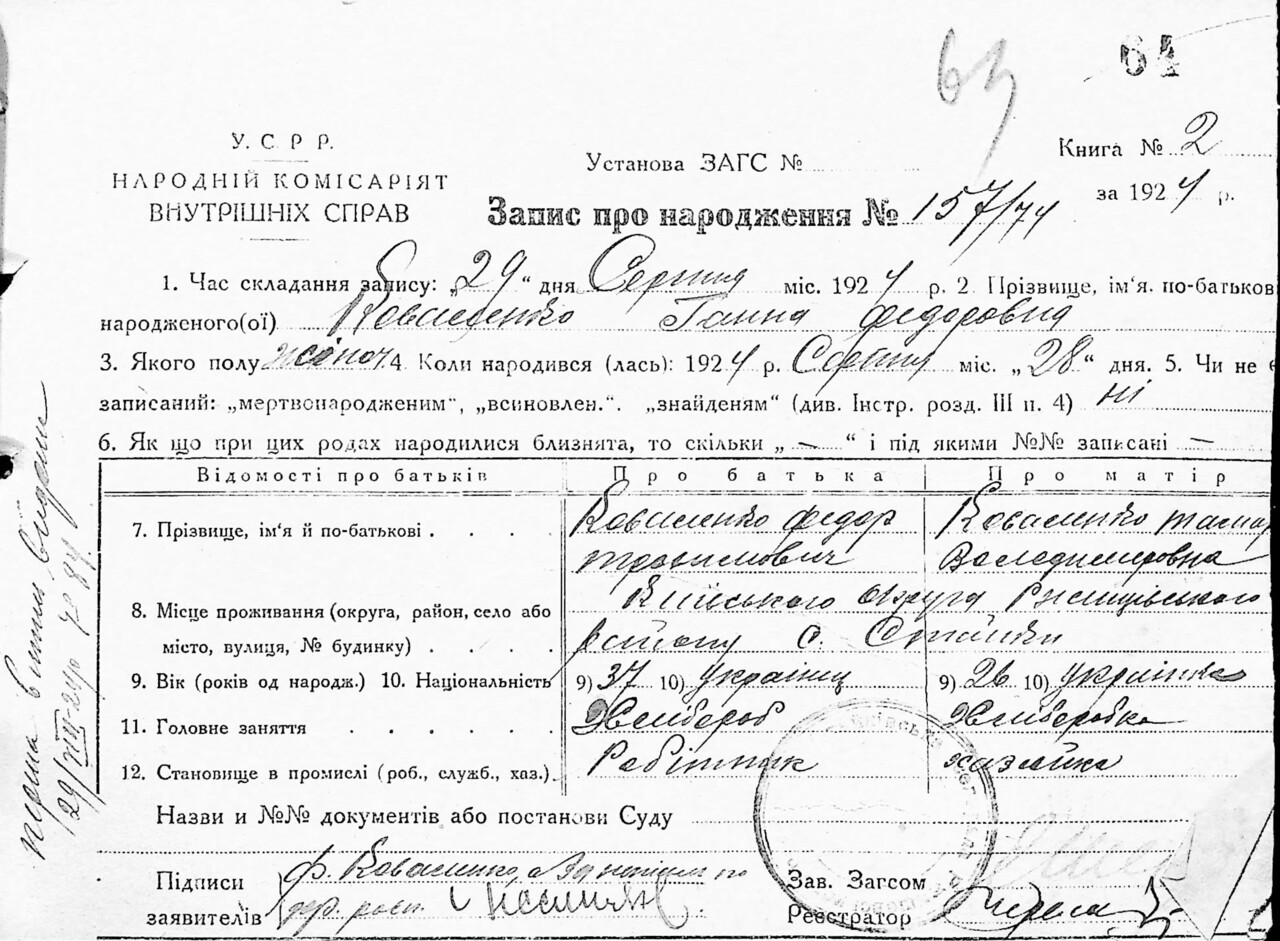 63
64
У. С. Р. Р.
НАРОДНІЙ КОМІСАРІЯТ
ВНУТРІШНІХ СПРАВ
Установа ЗАГС №
Книга № 2
за 1924 р.
Запис про народження № 157/74
1. Час складання запису: „29“ дня Серпня міс. 1924 р. 2 Прізвище, ім'я. по-батьков
народженого(ої) Коваленко Ганна Федоровна
3. Якого полу жіноч 4. Коли народився (лась): 1924 р. Серпня міс. „28“ дня. 5. Чи не є
записаний: „мертвонародженим“, „всиновлен.“. „знайденям“ (див. Інстр. розд. III п. 4) ні
6. Як що при цих родах народилися близнята, то скільки „—“ і під якими №№ записані —
Відомості про батьків Про батька Про матір
7. Прізвище, ім'я й по-батькові . . . . Коваленко Федор Трохимович Коваленко Тамар Володимировна
8. Місце проживання (округа, район, село або Київського округа Ржищівського
місто, вулиця, № будинку) . . . . району с. Стайки
9. Вік (років од народж.) 10. Національність 9) 37 10) українц 9) 26 10) українка
11. Головне заняття . . . . . . Хлібороб Хліборобка
12. Становище в промислі (роб., служб., хаз.). Робітник хазяйка
Назви и №№ документів або постанови Суду
Підписи Ф. Коваленко,
заявителів
Зав. Загсом
Реєстратор
29/VIII-24р № 84